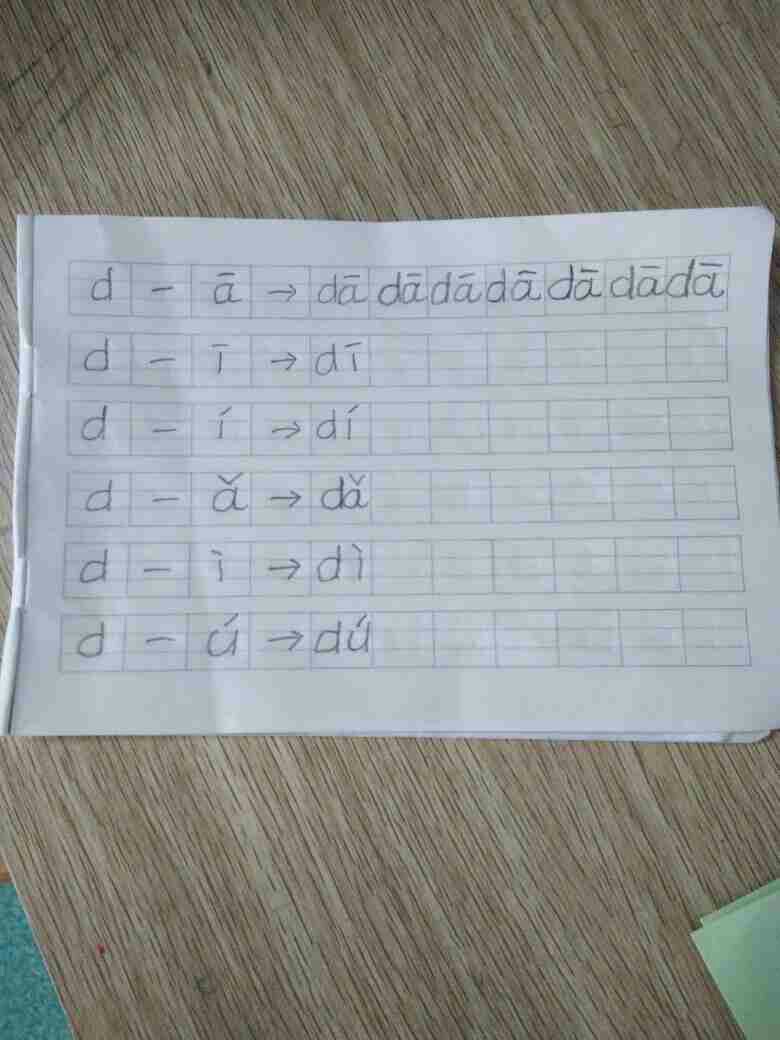 d - ā → dā dā dā dā dā dā dā
d - ī → dī
d - í → dí
d - ǎ → dǎ
d - ì → dì
d - ú → dú